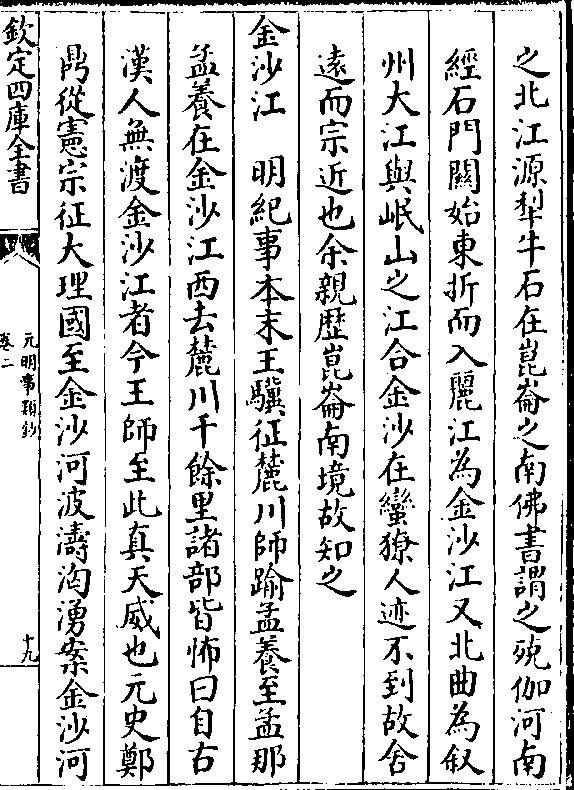 之北江源犁牛石在崑崙之南佛書謂之殑伽河南
經石門關始東折而入麗江為金沙江又北曲為叙
州大江與岷山之江合金沙在蠻獠人迹不到故舍
遠而宗近也余親歴崑崙南境故知之
金沙江　明紀事本末王驥征麓川師踰孟養至孟那
孟養在金沙江西去麓川千餘里諸部皆怖曰自古
漢人無渡金沙江者今王師至此真天威也元史鄭
鼎從憲宗征大理國至金沙河波濤洶湧案金沙河
欽定四庫全書
元明事類鈔
卷二
十九